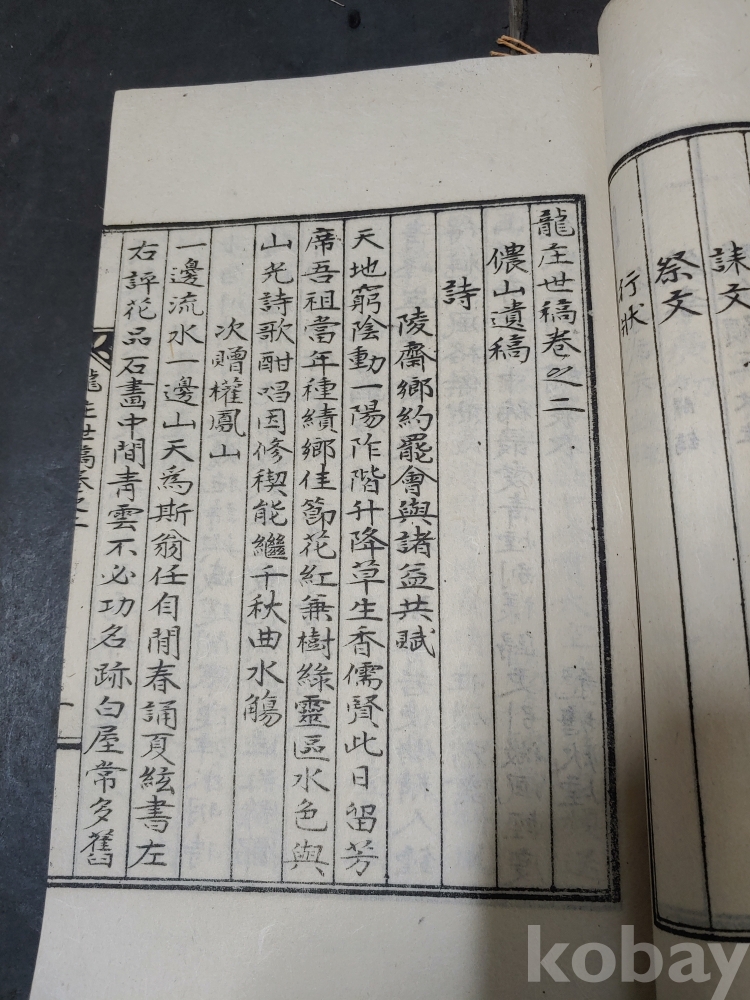 誄文
祭文
行狀
龍庄世稿卷之二
儂山遺稿
詩
陵齋鄉約罷會與諸益共賦
天地窮陰動一陽阼階升降草生香儒賢此日留芳
席吾祖當年種績鄉佳節花紅兼樹綠靈區水色與
山光詩歌酣唱因修稧能繼千秋曲水觴
次贈權鳳山
一邊流水一邊山天爲斯翁任自閒春誦夏絃書左
右評花品石畵中間靑雲不必功名跡白屋常多舊
龍庄世稿卷之二
kobay